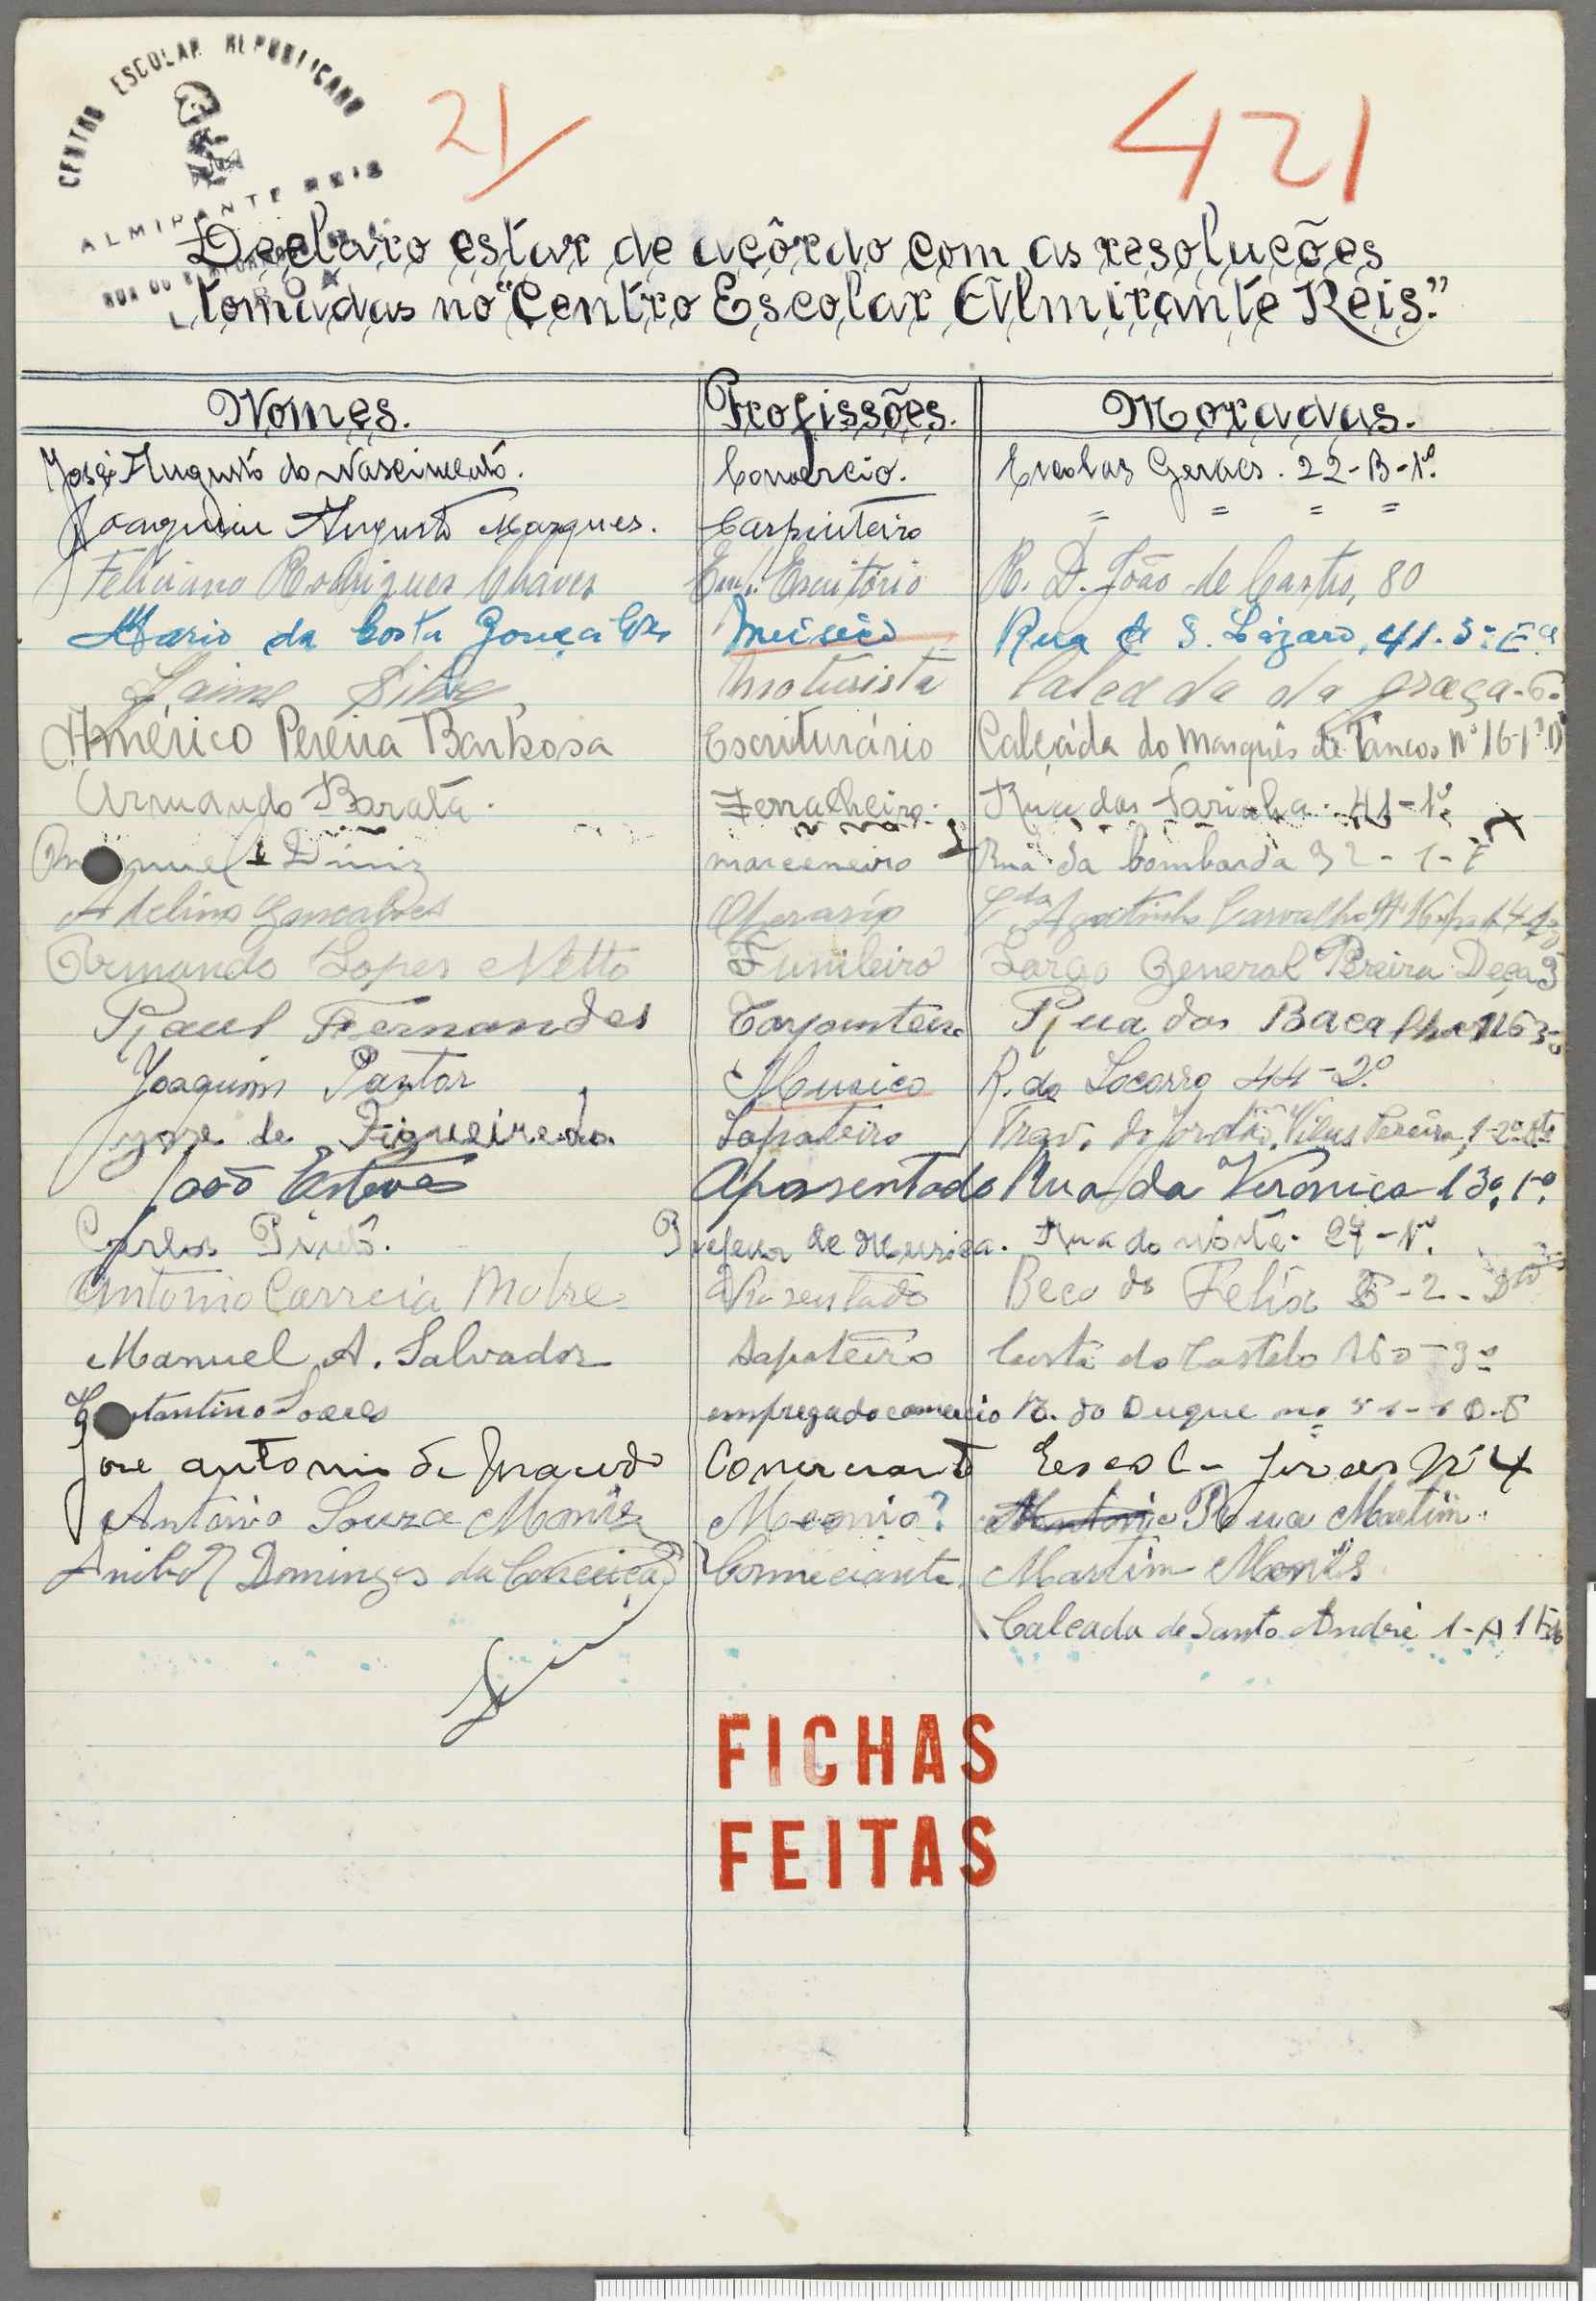 CENTRO ESCOLAR REPUBLICANO
ALMIRANTE REIS
21
421
Declaro estar de acôrdo com as resoluções
tomadas no "Centro Escolar Almirante Reis."
Nomes. Profissões. Moradas.
José Augusto do Nascimento. Comercio. Escolas Geraes. 22-B-1º.
Joaquim Augusto Marques. Carpinteiro = = = =
Feliciano Rodrigues Chaves Em. Escritório R. D. João de Castro, 80
Mario da Costa Gonçalves Musico Rua de S. Lázaro, 41. 3º Eº
Jaime Silva Motorista Calcada da graça-6-
Américo Pereira Barbosa Escriturário Calçáda do Marquês de Tancos nº 16-1º D
Armando Barata. Serralheiro. Rua das Farinha. 41-1º
Manuel Diniz marceneiro Rua da bombarda 32-1-E
Adelino Gonçalves Operario Cda Agostinho Carvalho Nº 16
Armando Lopes Netto Funileiro Largo General Pereira Deça 9
Raul Fernandes Carpinteiro Rua dos Bacalh
Joaquim Pastor Musico R. do Socorro 44-2.º
Jose de Figueiredo. Sapateiro Trav. do Jordão,
João Esteves Aposentado Rua da Veronica 13º, 1º.
Carlos Pinto. Professor de Musica. Rua do Norte. 27-1º.
Antonio Carreia Aposentado Beco do Felix -2-Dto
Manuel A. Salvador Sapateiro Costa do Castelo
Costantino Soares empregado comercio R. do Duque nº
José antonio de Macedo Comerciante Escol- Jeraes Nº 4
António Souza Moniz ? Rua Martim
Anibal Domingos da Conceição Commeciante Martim Monis
Calcada de Santo André 1-A 1
FICHAS
FEITAS